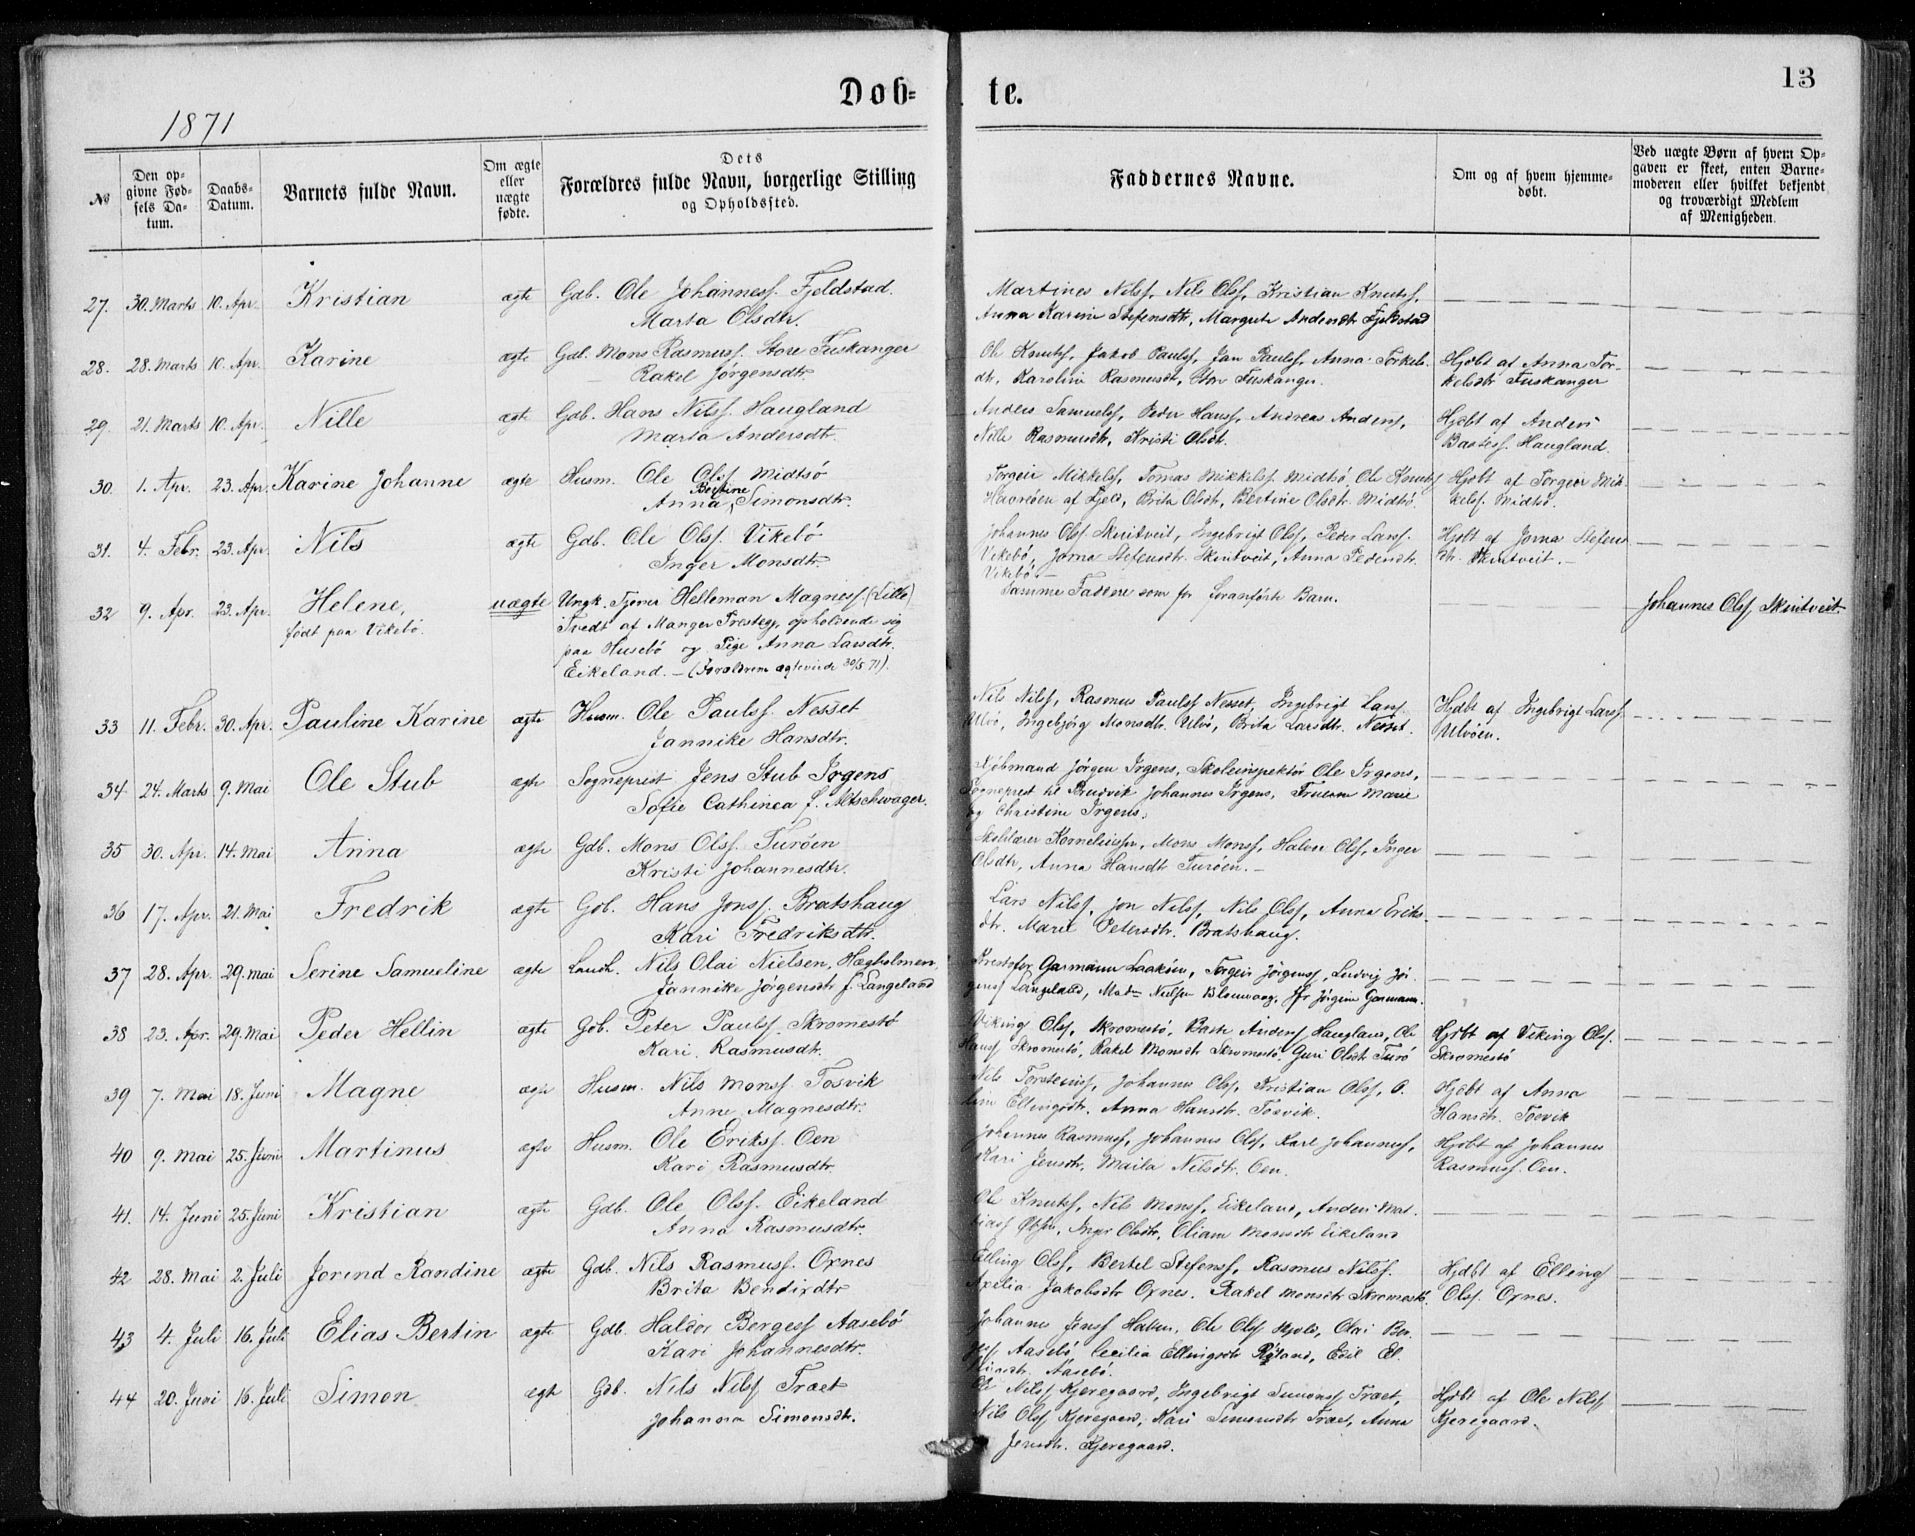 Døb=
te.
13
1871
№
Den opgivne Fødsels Datum.
Daabs-Datum.
Barnets fulde Navn.
Om ægte eller uægte fødte.
Dets Forældres fulde Navn, borgerlige Stilling og Opholdssted.
Faddernes Navne.
Om og af hvem hjemmedøbt.
Ved uægte Børn af hvem Opgaven er skeet, enten Barnemoderen eller hvilket bekjendt og troværdigt Medlem af Menigheden.
27. 30. Marts 10. Apr. Kristian ægte Gdb. Ole Johannesf. Fjeldstad.
Marta Olsdtr.
Martines Nilsf, Nils Olsf, Kristian Knutsf,
Anna Karine Stefensdtr, Margrete Andersdtr Fjeldstad
28. 28. Marts 10. Apr. Karine ægte Gdb. Mons Rasmusf. Store Fuskanger
Rakel Jørgensdtr.
Ole Knutsf, Jakob Paulsf, Jan Paulsf, Anna Torkels
dtr, Karoline Rasmusdt, Store Fuskanger.
Hjdbt af Anna Tor-
kelsdtr Fuskanger
29. 21. Marts 10. Apr. Nille ægte Gdb. Hans Nilsf. Haugland
Marta Andersdtr.
Anders Samuelsf, Peder Hansf, Andreas Andersf,
Nille Rasmusdtr, Kristi Olsdt.
Hjdbt af Anders
Bastesf. Haugland.
30. 1. Apr. 23. Apr. Karine Johanne ægte Husm. Ole Olsf Midtsø
Bertine
Anna Simonsdtr.
Torgeir Mikkelsf, Tomas Mikkelsf Midtsø, Ole Knutsf
af Fjeld, Brita Olsdt, Bertine Olsdt. Midtsø.
Hjdbt af Torgeir Mik-
kelsf. Midtsø.
31. 4. Febr. 23. Apr. Nils ægte Gdb. Ole Olsf. Vikebø
Inger Monsdtr.
Johannes Olsf Skintveit, Ingebrigt Olsf, Peder Larsf.
Vikebø, Jorna Stefensdtr. Skintveit, Anna Pedersdtr.
Vikebø.—
Hjdbt af Jorna Stefens
dtr. Skintveit.—
32 9. Apr. 23. Apr. Helene,
født paa Vikebø.
uægte Ungk. Tjener Helleman Magnesf. (Lille)
Tvedt af Manger Presteg. opholdende sig
paa Husebø og Pige Anna Larsdtr.
Eikeland.—(Forældrene ægteviede 30/5 71).
Samme Faddere som for foranførte Barn.
Johannes Olsf Skintveit.
33 11. Febr. 30. Apr. Pauline Karine ægte Husm. Ole Paulsf. Nesset
Jannike Hansdtr.
Nils Nilsf, Rasmus Paulsf Nesset, Ingebrigt Larsf.
Ulvø, Ingebjørg Monsdtr. Ulvø, Brita Larsdtr. Nesset.
Hjdbt af Ingebrigt Larsf.
Ulvøen.
34 24. Marts 9. Mai Ole Stub ægte Sogneprest Jens Stub Irgens
Sofie Cathinca f. Altschwager.
Kjøbmand Jørgen Irgens, Skoleinspektør Ole Irgens,
Sogneprest til Bruvik Johannes Irgens, Fruerne Marie
og Christine Irgens.
35 30. Apr. 14. Mai Anna ægte Gdb. Mons Olsf. Turøen
Kristi Johannesdtr.
Skolelærer Korneliusen, Mons Monsf, Halvor Olsf, Inger
Olsdtr, Anna Hansdt Turøen.—
36 17. Apr. 21. Mai Fredrik ægte Gdb. Hans Jonsf. Bratshaug
Kari Fredriksdtr.
Lars Nilsf, Jon Nilsf, Nils Olsf, Anna Eriks
dtr. Marie Petersdtr. Bratshaug.
37 28. Apr. 29. Mai Serine Samueline ægte Landh. Nils Olai Nielsen, Hægholmen,
Jannike Jørgensdtr f. Langeland
Krestofer Garmann Laaköen, Torgeir Jørgensf, Ludvig Jør-
gensf Langeland, Madm Nielsen Blomvaag, Jfr Jørgine Garmann.
38 23. Apr. 29. Mai Peder Hellin ægte Gdb. Peter Paulsf Skromestø
Kari Rasmusdtr.
Viking Olsf, Skromestø, Baste Andersf Haugland, Ole
Hansf Skromestø, Rakel Monsdtr Skromestø, Guri Olsdt Turø
Hjdbt af Viking Olsf.
Skromestø
39 7. Mai 18. Juni Magne ægte Husm. Nils Monsf. Tosvik
Anne Magnesdtr.
Nils Torsteinsf, Johannes Olsf, Kristian Olsf, O-
line Ellingsdtr. Anna Hansdtr. Tosvik.
Hjdbt af Anna
Hansdtr. Tosvik
40 9. Mai 25. Juni Martinus ægte Husm. Ole Eriksf. Oen
Kari Rasmusdtr.
Johannes Rasmusf, Johannes Olsf, Karl Johannesf,
Kari Jensdtr, Maila Nilsdtr. Oen.
Hjdbt af Johannes
Rasmusf. Oen.
41. 14. Juni 25. Juni Kristian ægte Gdb. Ole Olsf. Eikeland
Anna Rasmusdtr.
Ole Knutsf, Nils Monsf, Eikeland, Anders Mat-
, Inger Olsdtr, Monsdtr Eikeland
42 28. Mai 2. Juli Jorind Randine ægte Gdb. Nils Rasmusf. Oxnes
Brita Bendixdtr
Elling Olsf, Bertel Stefensf, Rasmus Nilsf.
Axelia Jakobsdtr Oxnes. Rakel Monsdtr Skromestø.
Hjdbt af Elling
Olsf. Oxnes.
43 4. Juli 16. Juli Elias Bertin ægte Gdb. Haldor Bergesf Aasebø
Kari Johannesdtr.
Johannes Jensf, Ole Olsf, Olai Ber-
gesf Aasebø, Cecilia Ellingsdtr,
Aasebø.
44 20. Juni 16. Juli Simon ægte Gdb. Nils Nilsf Træet
Johanna Simonsdtr.
Ole Nilsf Kjeregaard, Ingebrigt Simonsf Træet,
Nils Olsf Kjeregaard, Kari Simonsdtr Træet, Anna
Jensdtr. Kjeregaard.
Hjdbt af Ole Nilsf
Kjeregaard.